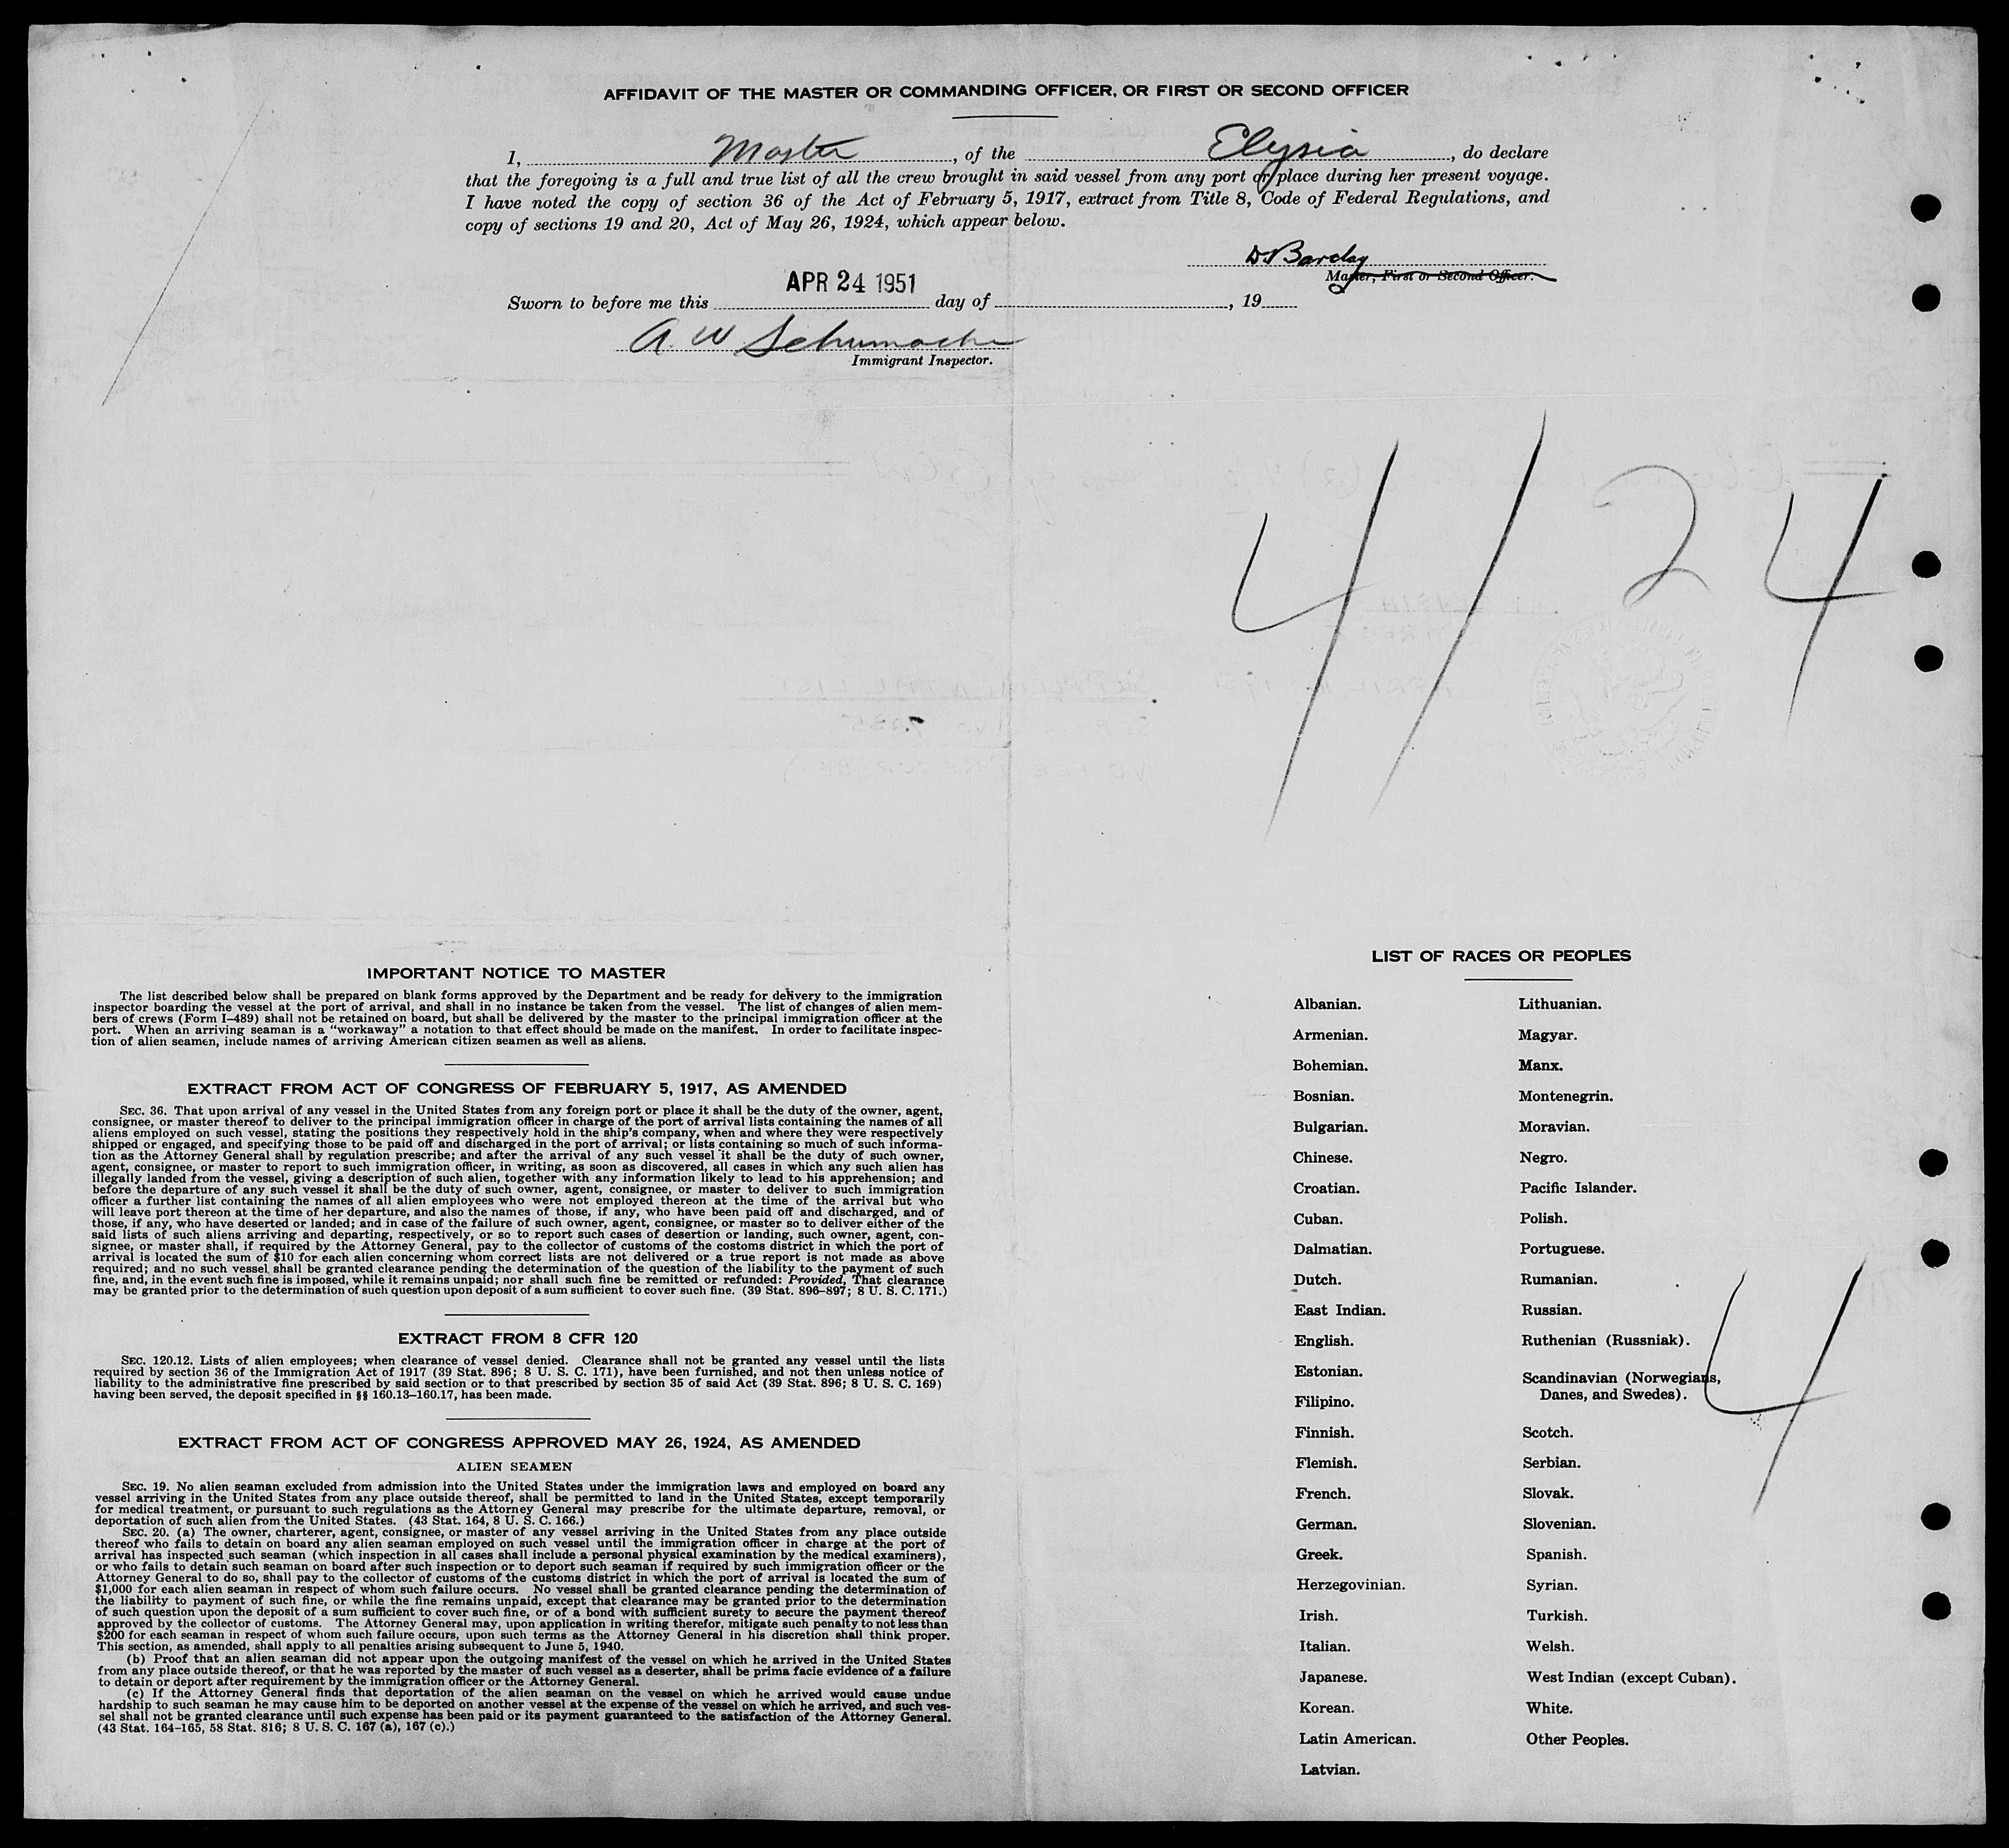 AFFIDAVIT OF THE MASTER OR COMMANDING OFFICER, OR FIRST OR SECOND OFFICER
I, Master, of the Elysia, do declare
that the foregoing is a full and true list of all the crew brought in said vessel from any port or place during her present voyage.
I have noted the copy of section 36 of the Act of February 5, 1917, extract from Title 8, Code of Federal Regulations, and
copy of sections 19 and 20, Act of May 26, 1924, which appear below.
D Barclay
Master, First or Second Officer.
APR 24 1951
Sworn to before me this day of , 19
A. W Schumacher
Immigrant Inspector.
4/24
IMPORTANT NOTICE TO MASTER
The list described below shall be prepared on blank forms approved by the Department and be ready for delivery to the immigration
inspector boarding the vessel at the port of arrival, and shall in no instance be taken from the vessel. The list of changes of alien mem-
bers of crews (Form I–489) shall not be retained on board, but shall be delivered by the master to the principal immigration officer at the
port. When an arriving seaman is a "workaway" a notation to that effect should be made on the manifest. In order to facilitate inspec-
tion of alien seamen, include names of arriving American citizen seamen as well as aliens.
EXTRACT FROM ACT OF CONGRESS OF FEBRUARY 5, 1917, AS AMENDED
SEC. 36. That upon arrival of any vessel in the United States from any foreign port or place it shall be the duty of the owner, agent,
consignee, or master thereof to deliver to the principal immigration officer in charge of the port of arrival lists containing the names of all
aliens employed on such vessel, stating the positions they respectively hold in the ship's company, when and where they were respectively
shipped or engaged, and specifying those to be paid off and discharged in the port of arrival; or lists containing so much of such informa-
tion as the Attorney General shall by regulation prescribe; and after the arrival of any such vessel it shall be the duty of such owner,
agent, consignee, or master to report to such immigration officer, in writing, as soon as discovered, all cases in which any such alien has
illegally landed from the vessel, giving a description of such alien, together with any information likely to lead to his apprehension; and
before the departure of any such vessel it shall be the duty of such owner, agent, consignee, or master to deliver to such immigration
officer a further list containing the names of all alien employees who were not employed thereon at the time of the arrival but who
will leave port thereon at the time of her departure, and also the names of those, if any, who have been paid off and discharged, and of
those, if any, who have deserted or landed; and in case of the failure of such owner, agent, consignee, or master so to deliver either of the
said lists of such aliens arriving and departing, respectively, or so to report such cases of desertion or landing, such owner, agent, con-
signee, or master shall, if required by the Attorney General, pay to the collector of customs of the costoms district in which the port of
arrival is located the sum of $10 for each alien concerning whom correct lists are not delivered or a true report is not made as above
required; and no such vessel shall be granted clearance pending the determination of the question of the liability to the payment of such
fine, and, in the event such fine is imposed, while it remains unpaid; nor shall such fine be remitted or refunded: Provided, That clearance
may be granted prior to the determination of such question upon deposit of a sum sufficient to cover such fine. (39 Stat. 896–897; 8 U. S. C. 171.)
EXTRACT FROM 8 CFR 120
SEC. 120.12. Lists of alien employees; when clearance of vessel denied. Clearance shall not be granted any vessel until the lists
required by section 36 of the Immigration Act of 1917 (39 Stat. 896; 8 U. S. C. 171), have been furnished, and not then unless notice of
liability to the administrative fine prescribed by said section or to that prescribed by section 35 of said Act (39 Stat. 896; 8 U. S. C. 169)
having been served, the deposit specified in §§ 160.13–160.17, has been made.
EXTRACT FROM ACT OF CONGRESS APPROVED MAY 26, 1924, AS AMENDED
ALIEN SEAMEN
SEC. 19. No alien seaman excluded from admission into the United States under the immigration laws and employed on board any
vessel arriving in the United States from any place outside thereof, shall be permitted to land in the United States, except temporarily
for medical treatment, or pursuant to such regulations as the Attorney General may prescribe for the ultimate departure, removal, or
deportation of such alien from the United States. (43 Stat. 164, 8 U. S. C. 166.)
SEC. 20. (a) The owner, charterer, agent, consignee, or master of any vessel arriving in the United States from any place outside
thereof who fails to detain on board any alien seaman employed on such vessel until the immigration officer in charge at the port of
arrival has inspected such seaman (which inspection in all cases shall include a personal physical examination by the medical examiners),
or who fails to detain such seaman on board after such inspection or to deport such seaman if required by such immigration officer or the
Attorney General to do so, shall pay to the collector of customs of the customs district in which the port of arrival is located the sum of
$1,000 for each alien seaman in respect of whom such failure occurs. No vessel shall be granted clearance pending the determination of
the liability to payment of such fine, or while the fine remains unpaid, except that clearance may be granted prior to the determination
of such question upon the deposit of a sum sufficient to cover such fine, or of a bond with sufficient surety to secure the payment thereof
approved by the collector of customs. The Attorney General may, upon application in writing therefor, mitigate such penalty to not less than
$200 for each seaman in respect of whom such failure occurs, upon such terms as the Attorney General in his discretion shall think proper.
This section, as amended, shall apply to all penalties arising subsequent to June 5, 1940.
(b) Proof that an alien seaman did not appear upon the outgoing manifest of the vessel on which he arrived in the United States
from any place outside thereof, or that he was reported by the master of such vessel as a deserter, shall be prima facie evidence of a failure
to detain or deport after requirement by the immigration officer or the Attorney General.
(c) If the Attorney General finds that deportation of the alien seaman on the vessel on which he arrived would cause undue
hardship to such seaman he may cause him to be deported on another vessel at the expense of the vessel on which he arrived, and such ves-
sel shall not be granted clearance until such expense has been paid or its payment guaranteed to the satisfaction of the Attorney General.
(43 Stat. 164–165, 58 Stat. 816; 8 U. S. C. 167 (a), 167 (c).)
LIST OF RACES OR PEOPLES
Albanian.
Armenian.
Bohemian.
Bosnian.
Bulgarian.
Chinese.
Croatian.
Cuban.
Dalmatian.
Dutch.
East Indian.
English.
Estonian.
Filipino.
Finnish.
Flemish.
French.
German.
Greek.
Herzegovinian.
Irish.
Italian.
Japanese.
Korean.
Latin American.
Latvian.
Lithuanian.
Magyar.
Manx.
Montenegrin.
Moravian.
Negro.
Pacific Islander.
Polish.
Portuguese.
Rumanian.
Russian.
Ruthenian (Russniak).
Scandinavian (Norwegians,
Danes, and Swedes).
Scotch.
Serbian.
Slovak.
Slovenian.
Spanish.
Syrian.
Turkish.
Welsh.
West Indian (except Cuban).
White.
Other Peoples.
4